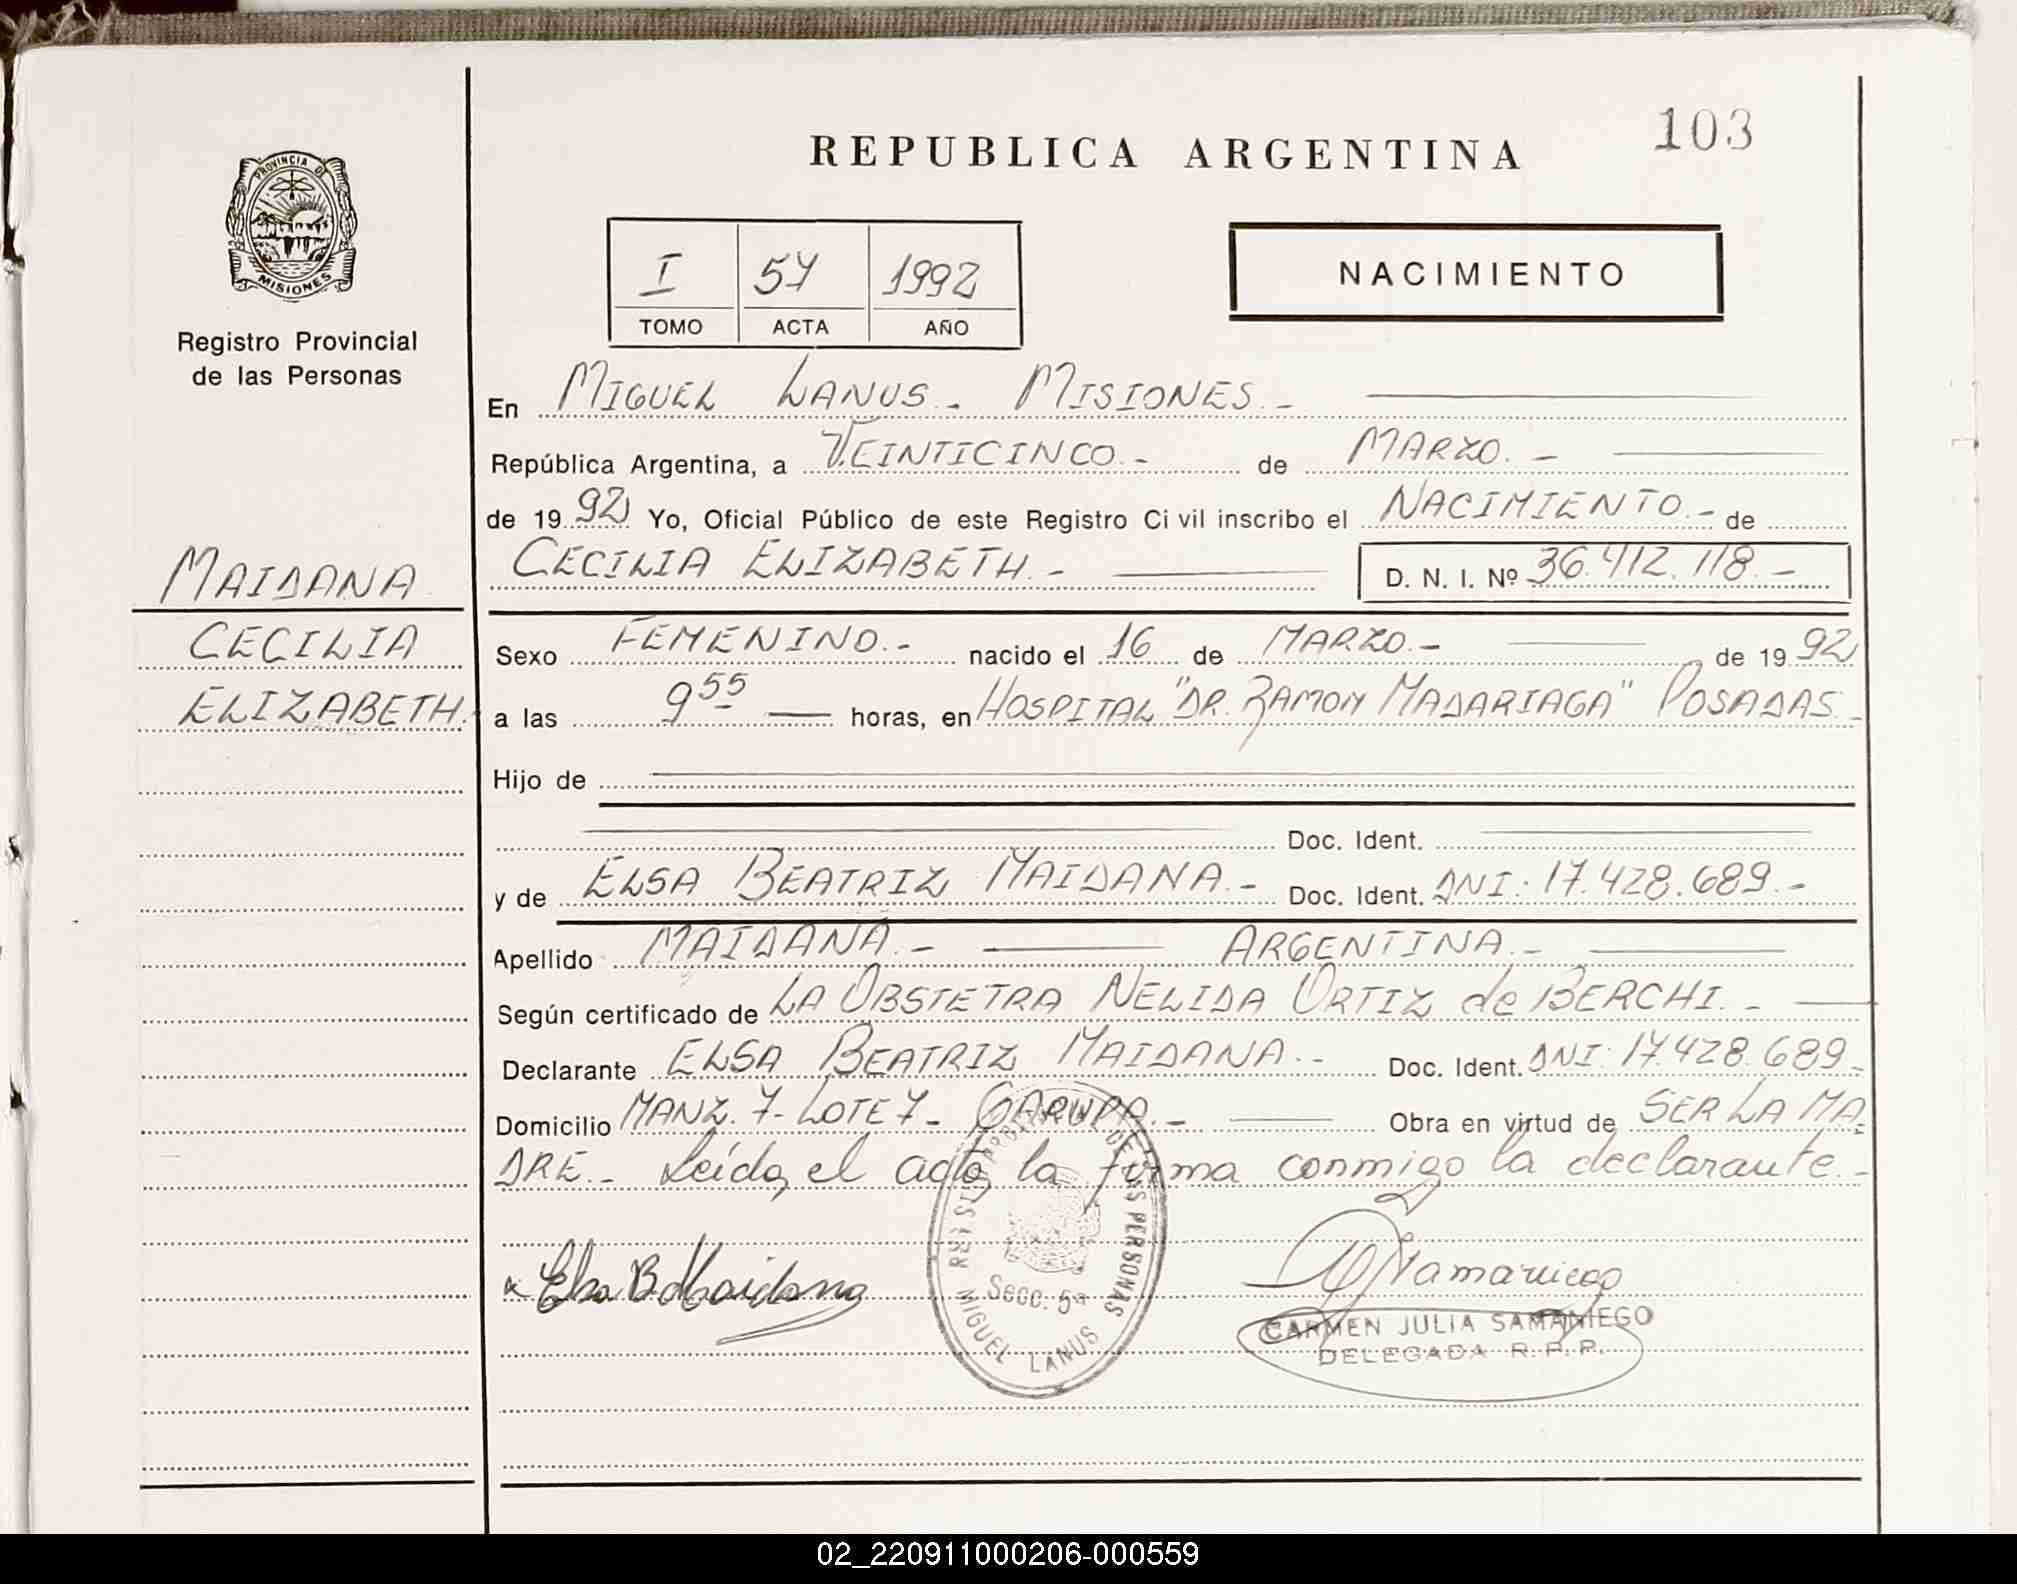 103
REPUBLICA ARGENTINA
PROVINCIA DE
MISIONES
Registro Provincial
de las Personas
I 57 1992
TOMO ACTA AÑO
NACIMIENTO
En MIGUEL LANUS.- MISIONES.-
República Argentina, a VEINTICINCO.- de MARZO.-
de 1992 Yo, Oficial Público de este Registro Civil inscribo el NACIMIENTO.- de
MAIDANA
CECILIA ELIZABETH.- D. N. I. Nº 36.412.118.-
CECILIA
Sexo FEMENINO.- nacido el 16 de MARZO.- de 1992
ELIZABETH.
a las 9 55 horas, en HOSPITAL "DR. RAMON MADARIAGA" POSADAS.-
Hijo de
Doc. Ident.
y de ELSA BEATRIZ MAIDANA.- Doc. Ident. DNI: 17.428.689.-
Apellido MAIDANA.- ARGENTINA.-
Según certificado de LA OBSTETRA NELIDA ORTIZ de BERCHI.-
Declarante ELSA BEATRIZ MAIDANA.- Doc. Ident. DNI: 17.428.689.-
Domicilio MANZ. 7- LOTE 7- GARUPA.- Obra en virtud de SER LA MA,
DRE.- Leída, el acta, la firma conmigo la declarante.-
Elsa B Maidana
DE LAS PERSONAS
Secc. 5ª
MIGUEL LANUS
CJSamaniego
CARMEN JULIA SAMANIEGO
DELEGADA R. P. P.
02_220911000206-000559